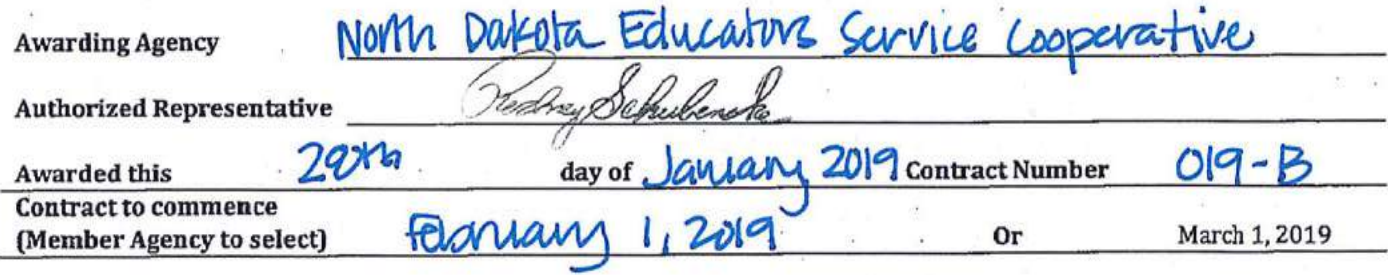 Awarding Agency North Dakota Educators Service Cooperative
Authorized Representative
Awarded this 28th day of January 2019 Contract Number 019-B
Contract to commence
(Member Agency to select) February 1, 2019 Or March 1, 2019